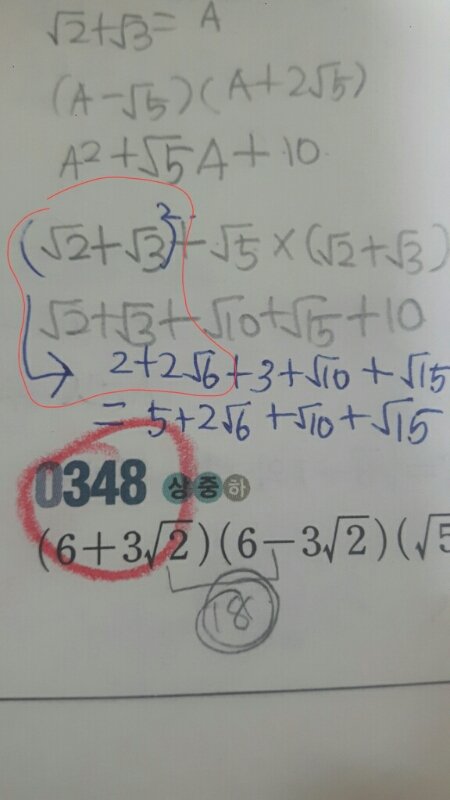 √2+√3= A
(A-√5)(A+2√5)
A²+√5A+10
(√2+√3)²+√5×(√2+√3)
√2+√3+√10+√15+10
→ 2+2√6+3+√10+√15
= 5+2√6+√10+√15
0348 상중하
(6+3√2)(6-3√2)(√5
18